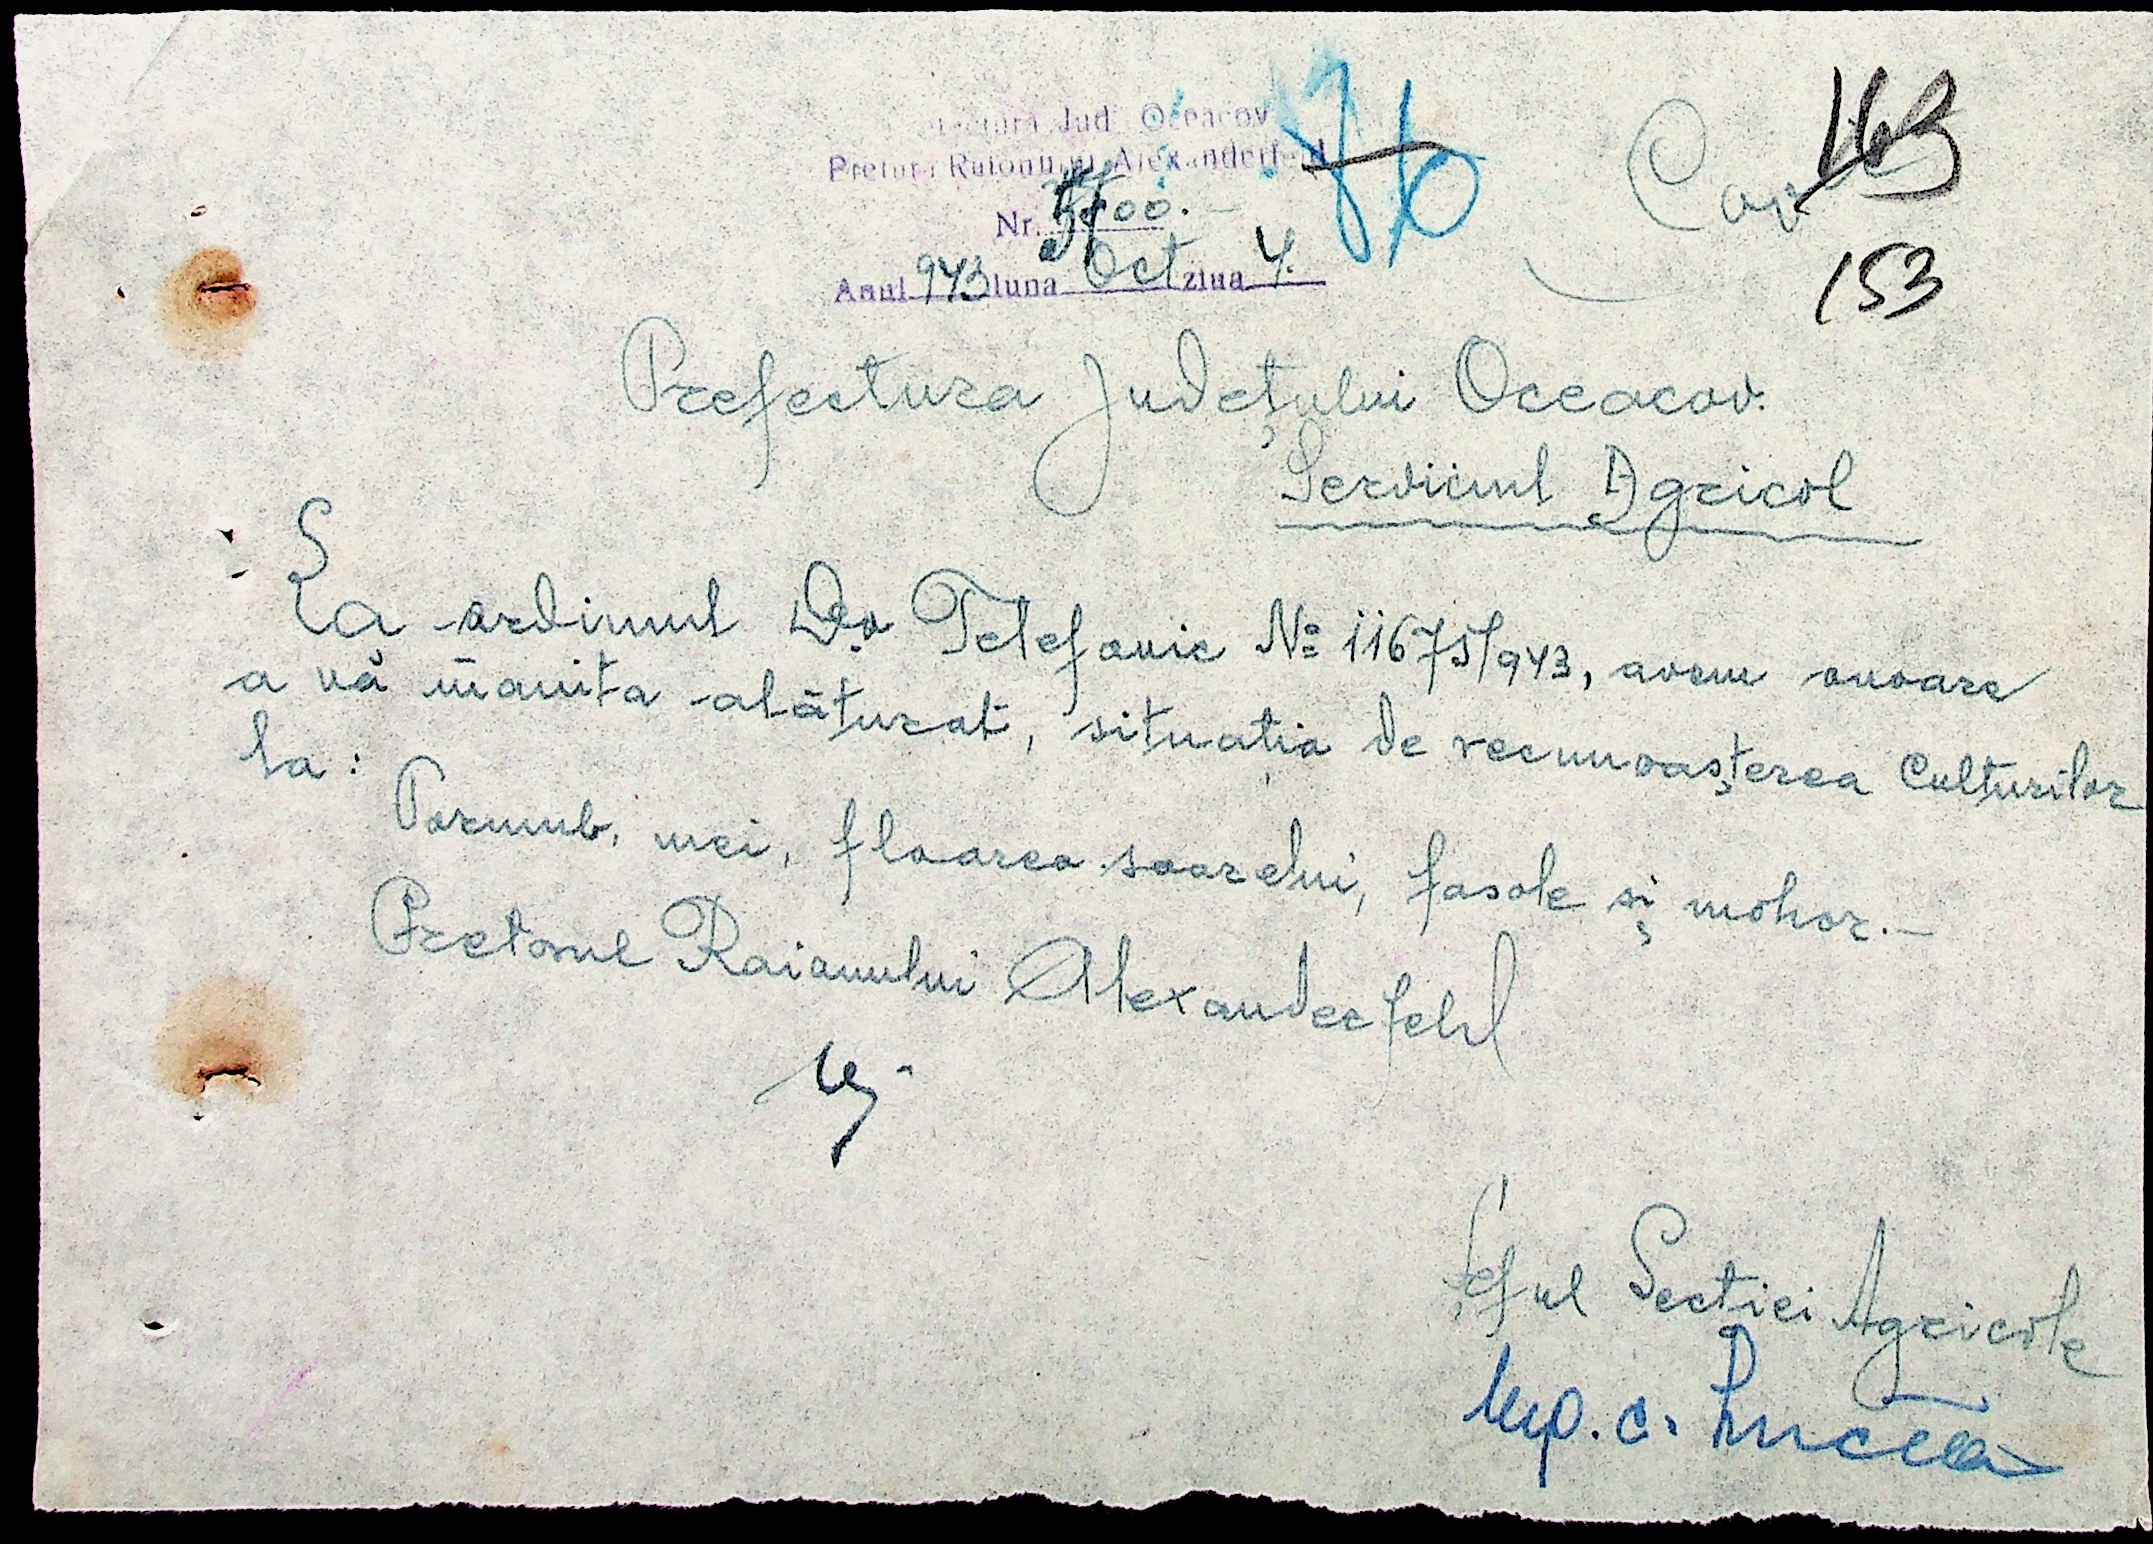 Prefectura Jud. Oceacov
Pretura Raionului Alexanderfeld
Nr. 5700.-
Anul 943 luna Oct ziua 4.
76
163
153
Prefectura Județului Oceacov.
Serviciul Agricol
La ordinul Dv. Telefonic No 11675/943, avem onoare
a vă înainta alăturat, situația de recunoașterea Culturilor
la:
Porumb, mei, floarea soarelui, fasole și mohor.-
Pretorul Raionului Alexanderfeld
Șeful Secției Agricole